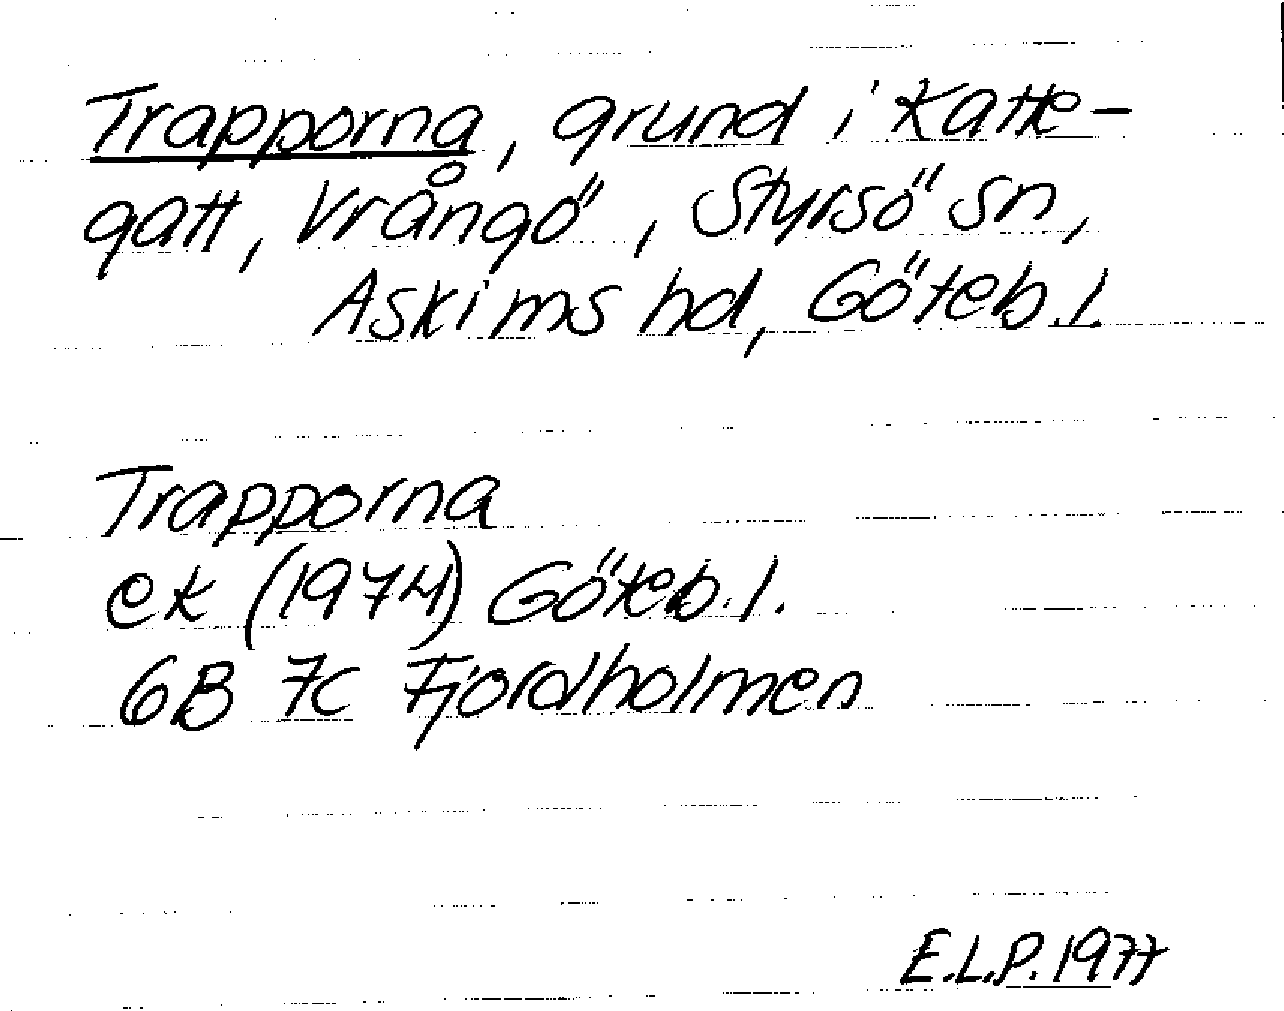 Trapporna, grund i Katte-
gatt, Vrångö, Styrsö sn,
Askims hd, Göteb. l.
Trapporna
ek (1974) Göteb. l.
6B 7c Fjordholmen
E.L.P. 1977